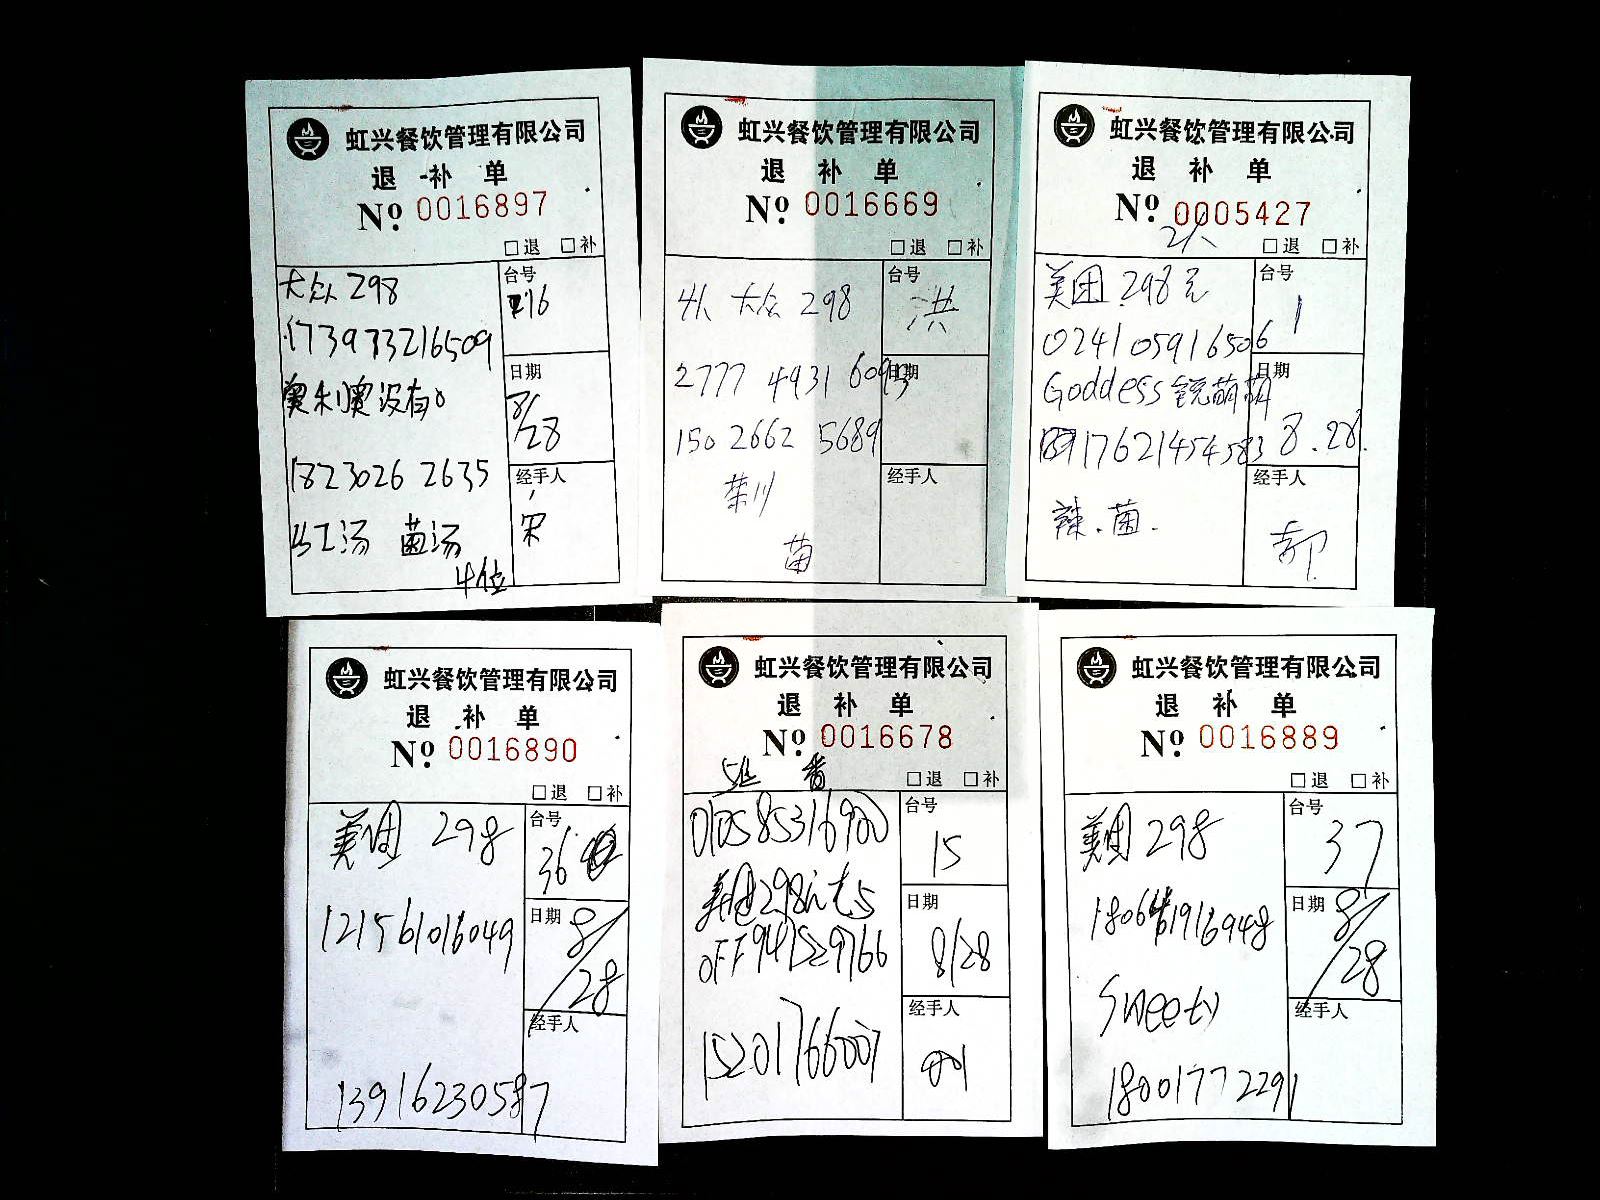 虹兴餐饮管理有限公司
退补单
Nº 0016897
□退 □补
大众 298
台号
216
173973216509
奥利奥没有。
日期
8/28
18230262635
经手人
宋
红汤 菌汤
4位
虹兴餐饮管理有限公司
退补单
Nº 0016669
□退 □补
4人 大众 298
台号
洪
2777 4931 6093
日期
150 2662 5689
经手人
菌
虹兴餐饮管理有限公司
退补单
Nº 0005427
2人
□退 □补
美团 298元
台号
1
024105916506
日期
Goddess 锐萌萌
8.28
17621454583
经手人
辣.菌.
郝
虹兴餐饮管理有限公司
退补单
Nº 0016890
□退 □补
美团 298
台号
36
121561016049
日期
8/28
经手人
13916230587
虹兴餐饮管理有限公司
退补单
Nº 0016678
5位 番
□退 □补
010585316900
台号
15
美团298元
日期
OFF941529766
8/28
经手人
15201766007
虹兴餐饮管理有限公司
退补单
Nº 0016889
□退 □补
美团 298
台号
37
日期
8/28
Sweety
经手人
18001772291